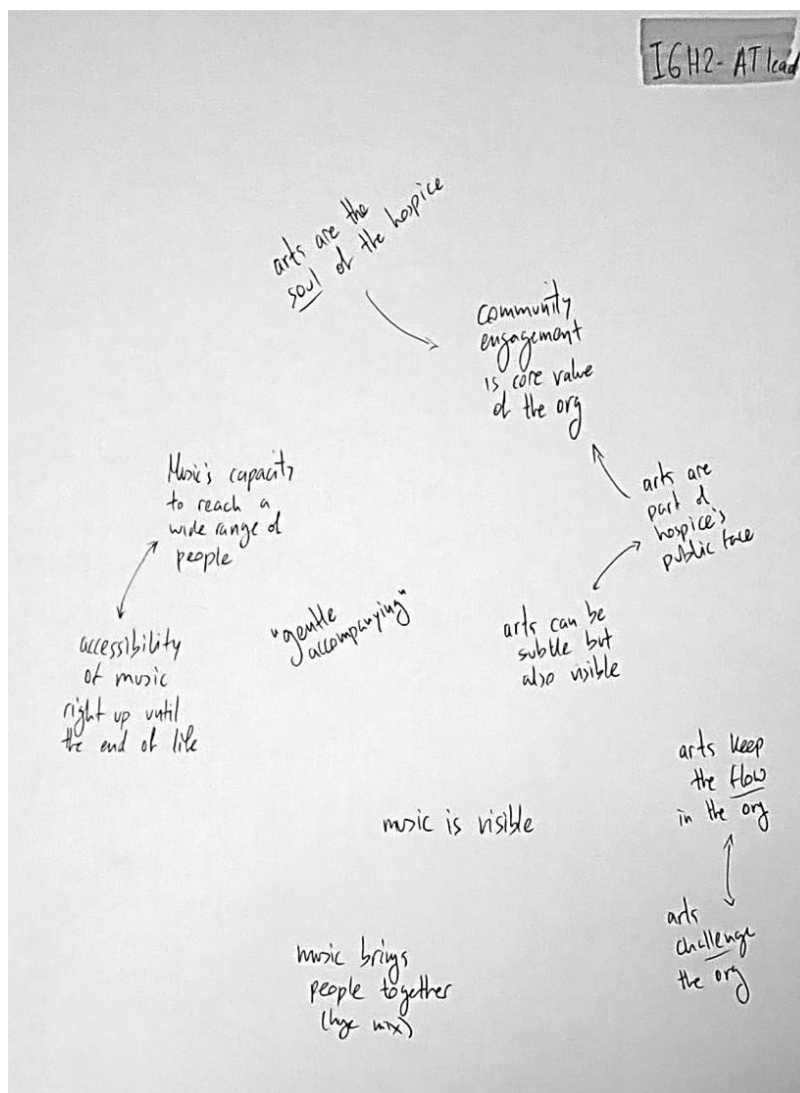 IGH2- AT lead
arts are the
soul of the hospice
community
engagement
is core value
of the org
Music's capacity
to reach a
wide range of
people
arts are
part of
hospice's
public face
"gentle
accompanying"
arts can be
subtle but
also visible
accessibility
of music
right up until
the end of life
arts keep
the flow
in the org
music is visible
arts
challenge
the org
music brings
people together
(huge mix)